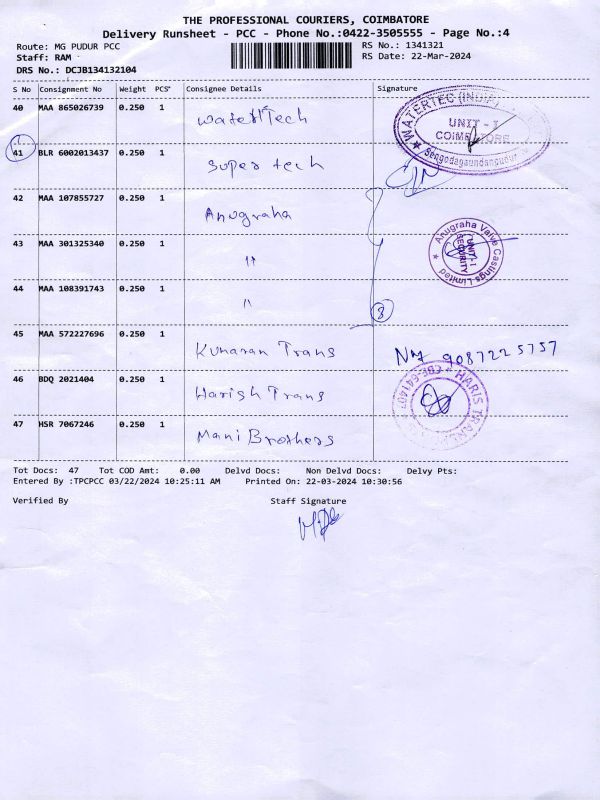 THE PROFESSIONAL COURIERS, COIMBATORE
Delivery Runsheet - PCC - Phone No.:0422-3505555 - Page No.:4
Route: MG PUDUR PCC RS No.: 1341321
Staff: RAM RS Date: 22-Mar-2024
DRS No.: DCJB134132104
S No Consignment No Weight PCS* Consignee Details Signature
40 MAA 865026739 0.250 1 WaterTech
WATERTEC (INDIA)
UNIT - I
COIMBATORE
Sengodagaundanpudur
41 BLR 6002013437 0.250 1 Super tech
42 MAA 107855727 0.250 1 Anugraha
Anugraha Valve Castings Limited
UNIT-I
SECURITY
43 MAA 301325340 0.250 1 "
44 MAA 108391743 0.250 1 "
3
45 MAA 572227696 0.250 1 Kumaran Trans 9087225757
46 BDQ 2021404 0.250 1 Harish Trans
HARIS TRANS
CBE-641407
47 HSR 7067246 0.250 1 Mani Brothers
Tot Docs: 47 Tot COD Amt: 0.00 Delvd Docs: Non Delvd Docs: Delvy Pts:
Entered By :TPCPCC 03/22/2024 10:25:11 AM Printed On: 22-03-2024 10:30:56
Verified By Staff Signature